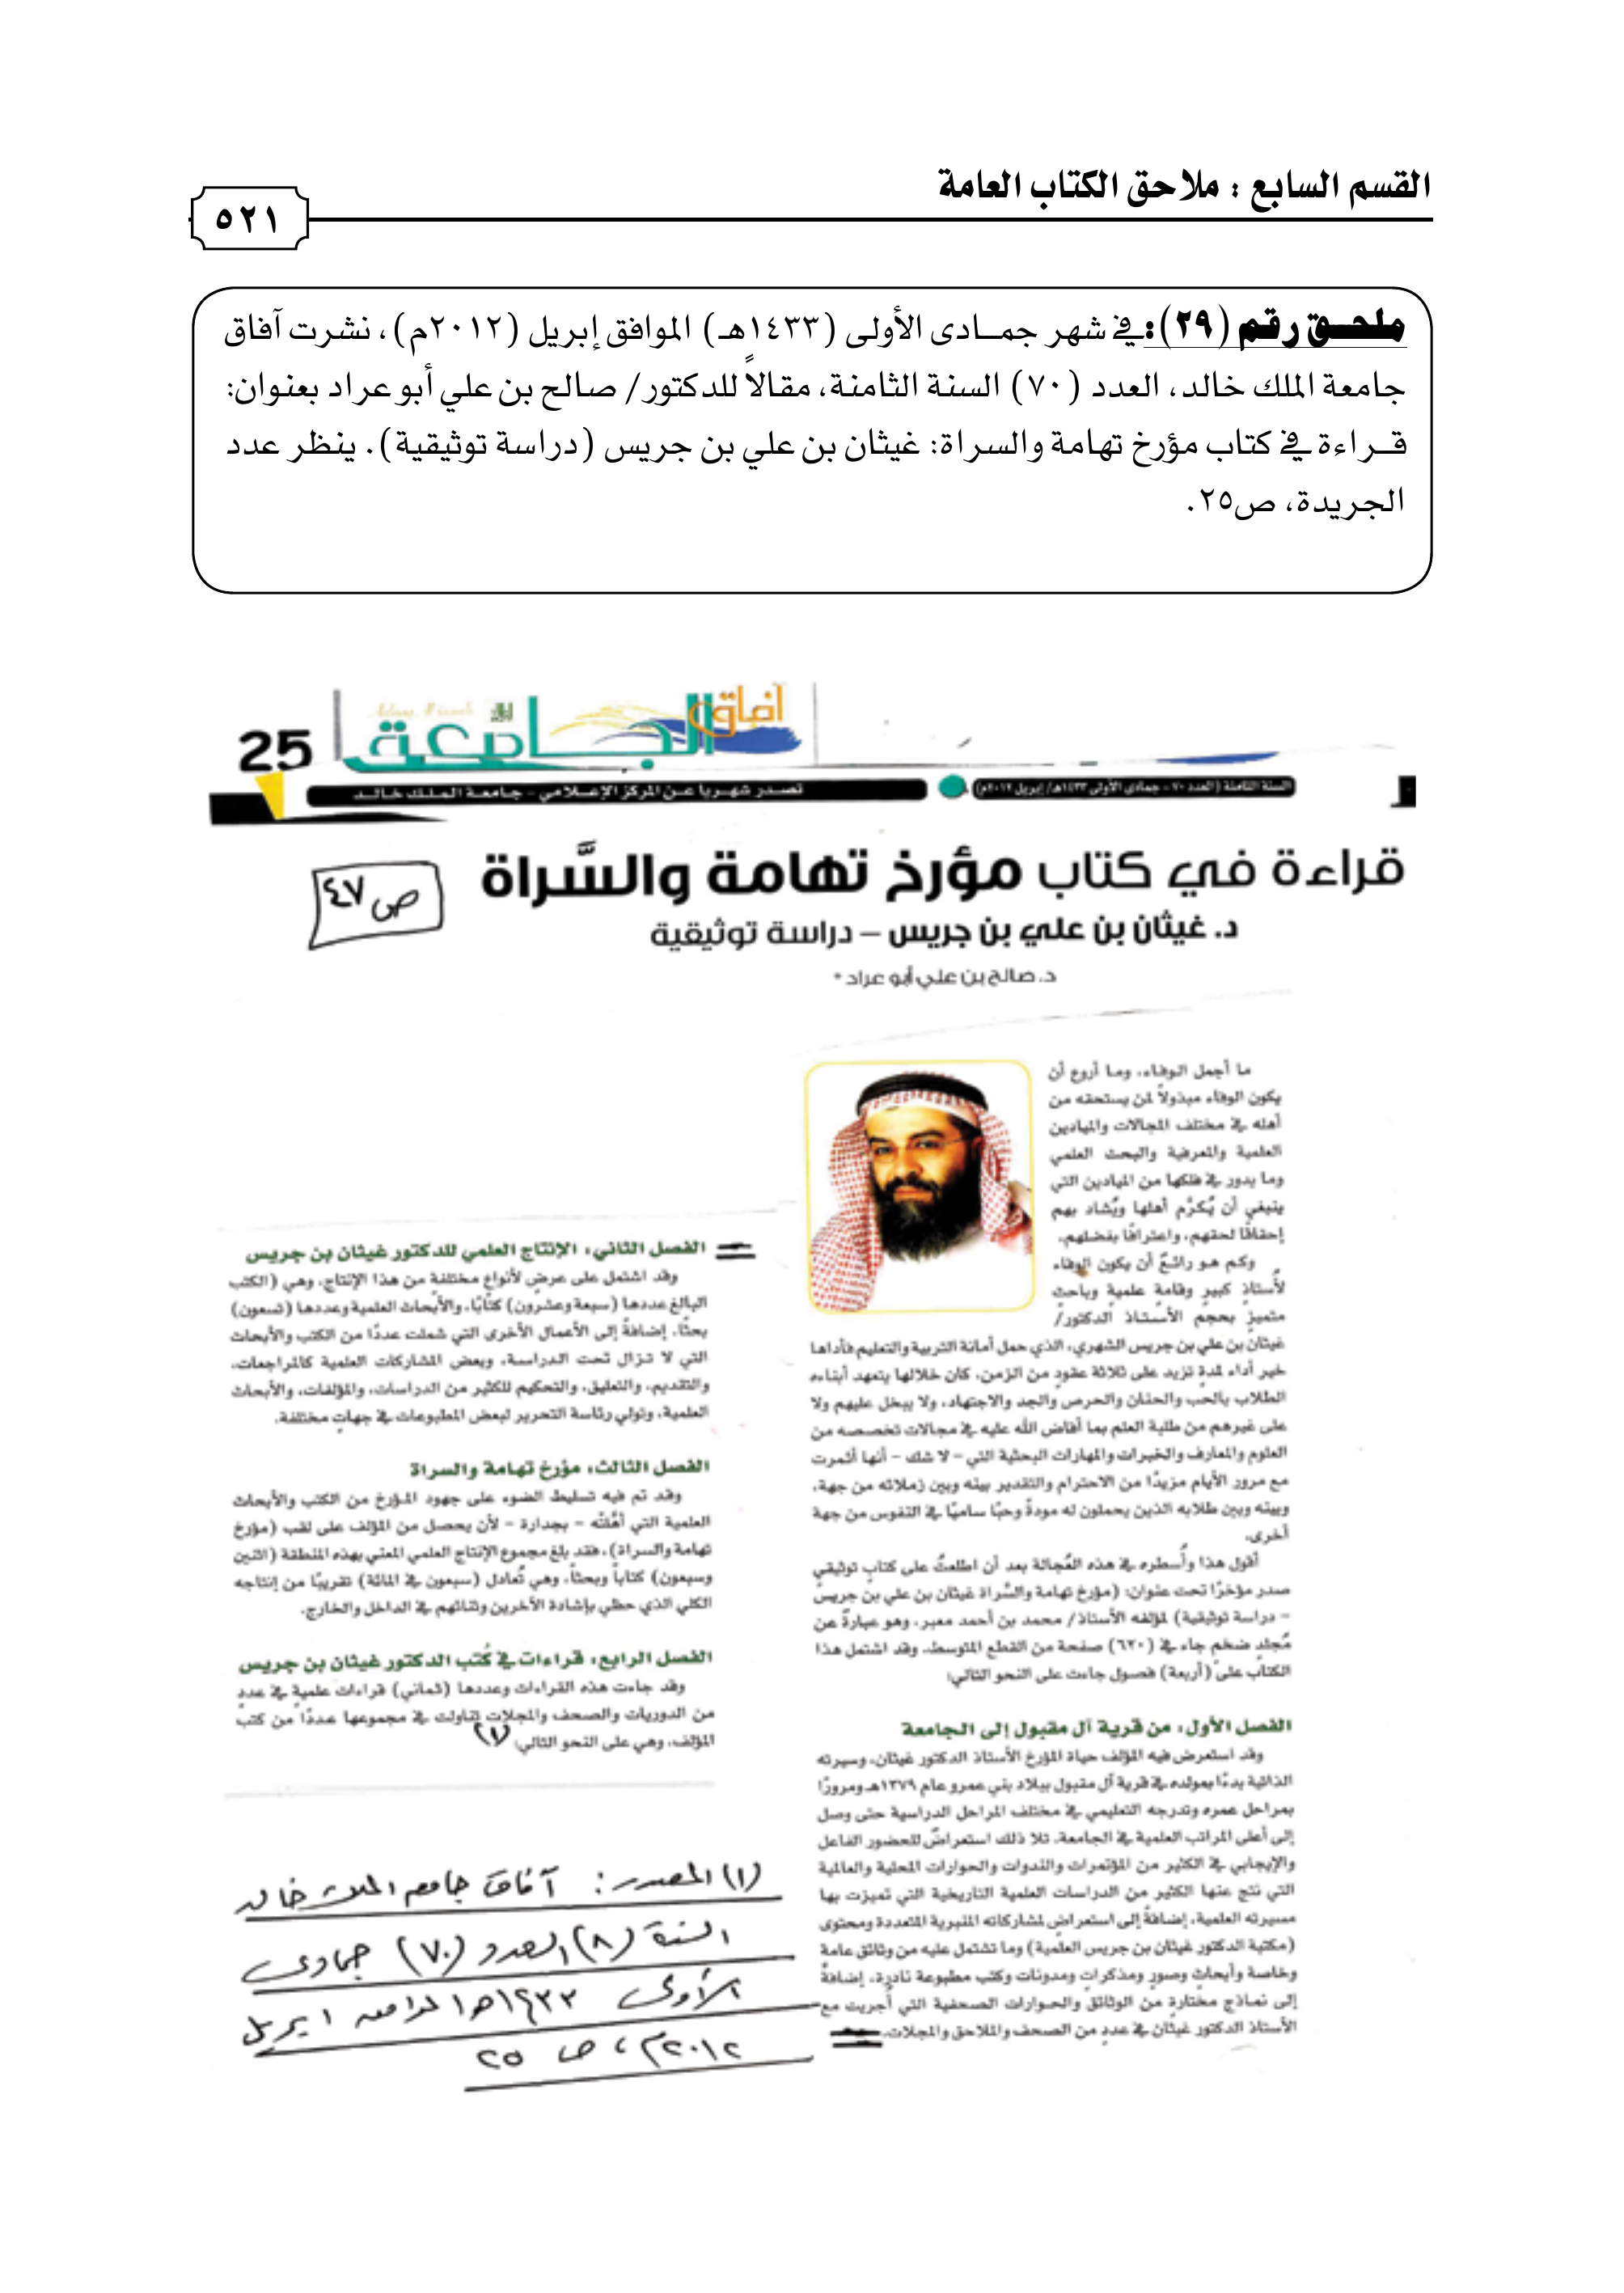 القسم السابع : ملاحق الكتاب العامة
٥٢١
ملحـق رقم (٢٩): في شهر جمـادى الأولى (١٤٣٣هـ) الموافق إبريل (٢٠١٢م)، نشرت آفاق
جامعة الملك خالد، العدد (٧٠) السنة الثامنة، مقالاً للدكتور/ صالح بن علي أبو عراد بعنوان:
قـراءة في كتاب مؤرخ تهامة والسراة: غيثان بن علي بن جريس (دراسة توثيقية). ينظر عدد
الجريدة، ص٢٥.
آفاق الجامعة
25
السنة الثامنة (العدد ٧٠ - جمادى الأولى ١٤٣٣هـ/ إبريل ٢٠١٢م)
تصدر شهريا عن المركز الإعلامي - جامعة الملك خالد
قراءة في كتاب مؤرخ تهامة والسَّراة
ص ٤٧
د. غيثان بن علي بن جريس – دراسة توثيقية
د. صالح بن علي أبو عراد *
ما أجمل الوفاء، وما أروع أن
يكون الوفاء مبذولاً لمن يستحقه من
أهله في مختلف المجالات والميادين
العلمية والمعرفية والبحث العلمي
وما يدور في فلكها من الميادين التي
ينبغي أن يُكرَّم أهلها ويُشاد بهم
إحقاقًا لحقهم، واعترافًا بفضلهم.
وكم هو رائعٌ أن يكون الوفاء
لأستاذٍ كبيرٍ وقامةٍ علميةٍ وباحثٍ
متميزٍ بحجم الأستاذ الدكتور/
غيثان بن علي بن جريس الشهري، الذي حمل أمانة التربية والتعليم فأداها
خير أداء لمدةٍ تزيد على ثلاثة عقودٍ من الزمن، كان خلالها يتعهد أبناءه
الطلاب بالحب والحنان والحرص والجد والاجتهاد، ولا يبخل عليهم ولا
على غيرهم من طلبة العلم بما أفاض الله عليه في مجالات تخصصه من
العلوم والمعارف والخبرات والمهارات البحثية التي – لا شك – أنها أثمرت
مع مرور الأيام مزيدًا من الاحترام والتقدير بينه وبين زملائه من جهة،
وبينه وبين طلابه الذين يحملون له مودةً وحبًا ساميًا في النفوس من جهة
أخرى.
أقول هذا وأُسطره في هذه العُجالة بعد أن اطلعتُ على كتابٍ توثيقيٍ
صدر مؤخرًا تحت عنوان: (مؤرخ تهامة والسَّراة غيثان بن علي بن جريس
– دراسة توثيقية) لمؤلفه الأستاذ/ محمد بن أحمد معبر، وهو عبارةٌ عن
مُجلدٍ ضخمٍ جاء في (٦٢٠) صفحة من القطع المتوسط. وقد اشتمل هذا
الكتاب على (أربعة) فصول جاءت على النحو التالي:
الفصل الأول: من قرية آل مقبول إلى الجامعة
وقد استعرض فيه المؤلف حياة المؤرخ الأستاذ الدكتور غيثان، وسيرته
الذاتية بدءًا بمولده في قرية آل مقبول ببلاد بني عمرو عام ١٣٧٩هـ ومرورًا
بمراحل عمره وتدرجه التعليمي في مختلف المراحل الدراسية حتى وصل
إلى أعلى المراتب العلمية في الجامعة، تلا ذلك استعراضٌ للحضور الفاعل
والإيجابي في الكثير من المؤتمرات والندوات والحوارات المحلية والعالمية
التي نتج عنها الكثير من الدراسات العلمية التاريخية التي تميزت بها
مسيرته العلمية، إضافةً إلى استعراضٍ لمشاركاته المنبرية المتعددة ومحتوى
(مكتبة الدكتور غيثان بن جريس العلمية) وما تشتمل عليه من وثائق عامة
وخاصة وأبحاثٍ وصورٍ ومذكراتٍ ومدونات وكتب مطبوعة نادرة، إضافةً
إلى نماذج مختارةٍ من الوثائق والحوارات الصحفية التي أُجريت مع
الأستاذ الدكتور غيثان في عددٍ من الصحف والملاحق والمجلات.
الفصل الثاني: الإنتاج العلمي للدكتور غيثان بن جريس
وقد اشتمل على عرضٍ لأنواعٍ مختلفةٍ من هذا الإنتاج، وهي (الكتب
البالغ عددها (سبعة وعشرون) كتابًا، والأبحاث العلمية وعددها (تسعون)
بحثًا، إضافةً إلى الأعمال الأخرى التي شملت عددًا من الكتب والأبحاث
التي لا تزال تحت الدراسة، وبعض المشاركات العلمية كالمراجعات،
والتقديم، والتعليق، والتحكيم للكثير من الدراسات، والمؤلفات، والأبحاث
العلمية، وتولي رئاسة التحرير لبعض المطبوعات في جهاتٍ مختلفة.
الفصل الثالث: مؤرخ تهامة والسراة
وقد تم فيه تسليط الضوء على جهود المؤرخ من الكتب والأبحاث
العلمية التي أهَّلتْه – بجدارة – لأن يحصل من المؤلف على لقب (مؤرخ
تهامة والسراة)، فقد بلغ مجموع الإنتاج العلمي المعني بهذه المنطقة (اثنين
وسبعون) كتاباً وبحثاً، وهي تُعادل (سبعون في المائة) تقريبًا من إنتاجه
الكلي الذي حظي بإشادة الآخرين وثنائهم في الداخل والخارج.
الفصل الرابع: قراءات في كُتب الدكتور غيثان بن جريس
وقد جاءت هذه القراءات وعددها (ثماني) قراءات علميةٍ في عددٍ
من الدوريات والصحف والمجلات تناولت في مجموعها عددًا من كتب
المؤلف، وهي على النحو التالي: (١)
(١) المصدر: آفاق جامعة الملك خالد
السنة (٨) العدد (٧٠) جمادى
الأولى ١٤٣٣هـ/ الموافق ابريل
٢٠١٢م، ص ٢٥